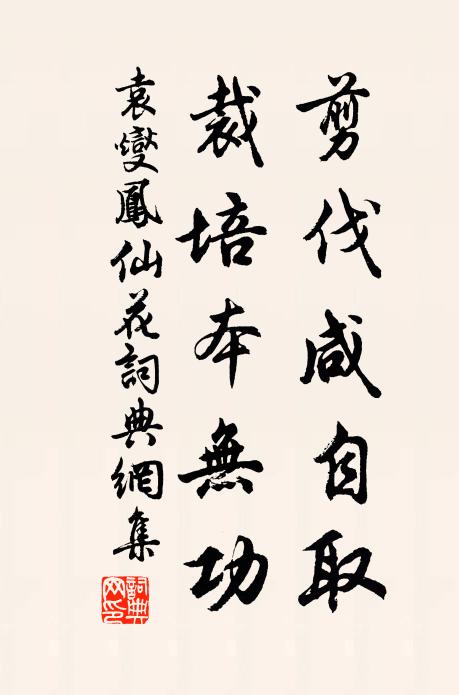 剪伐咸自取
裁培本無功
袁燮鳳仙花詞典網集
詞典網印